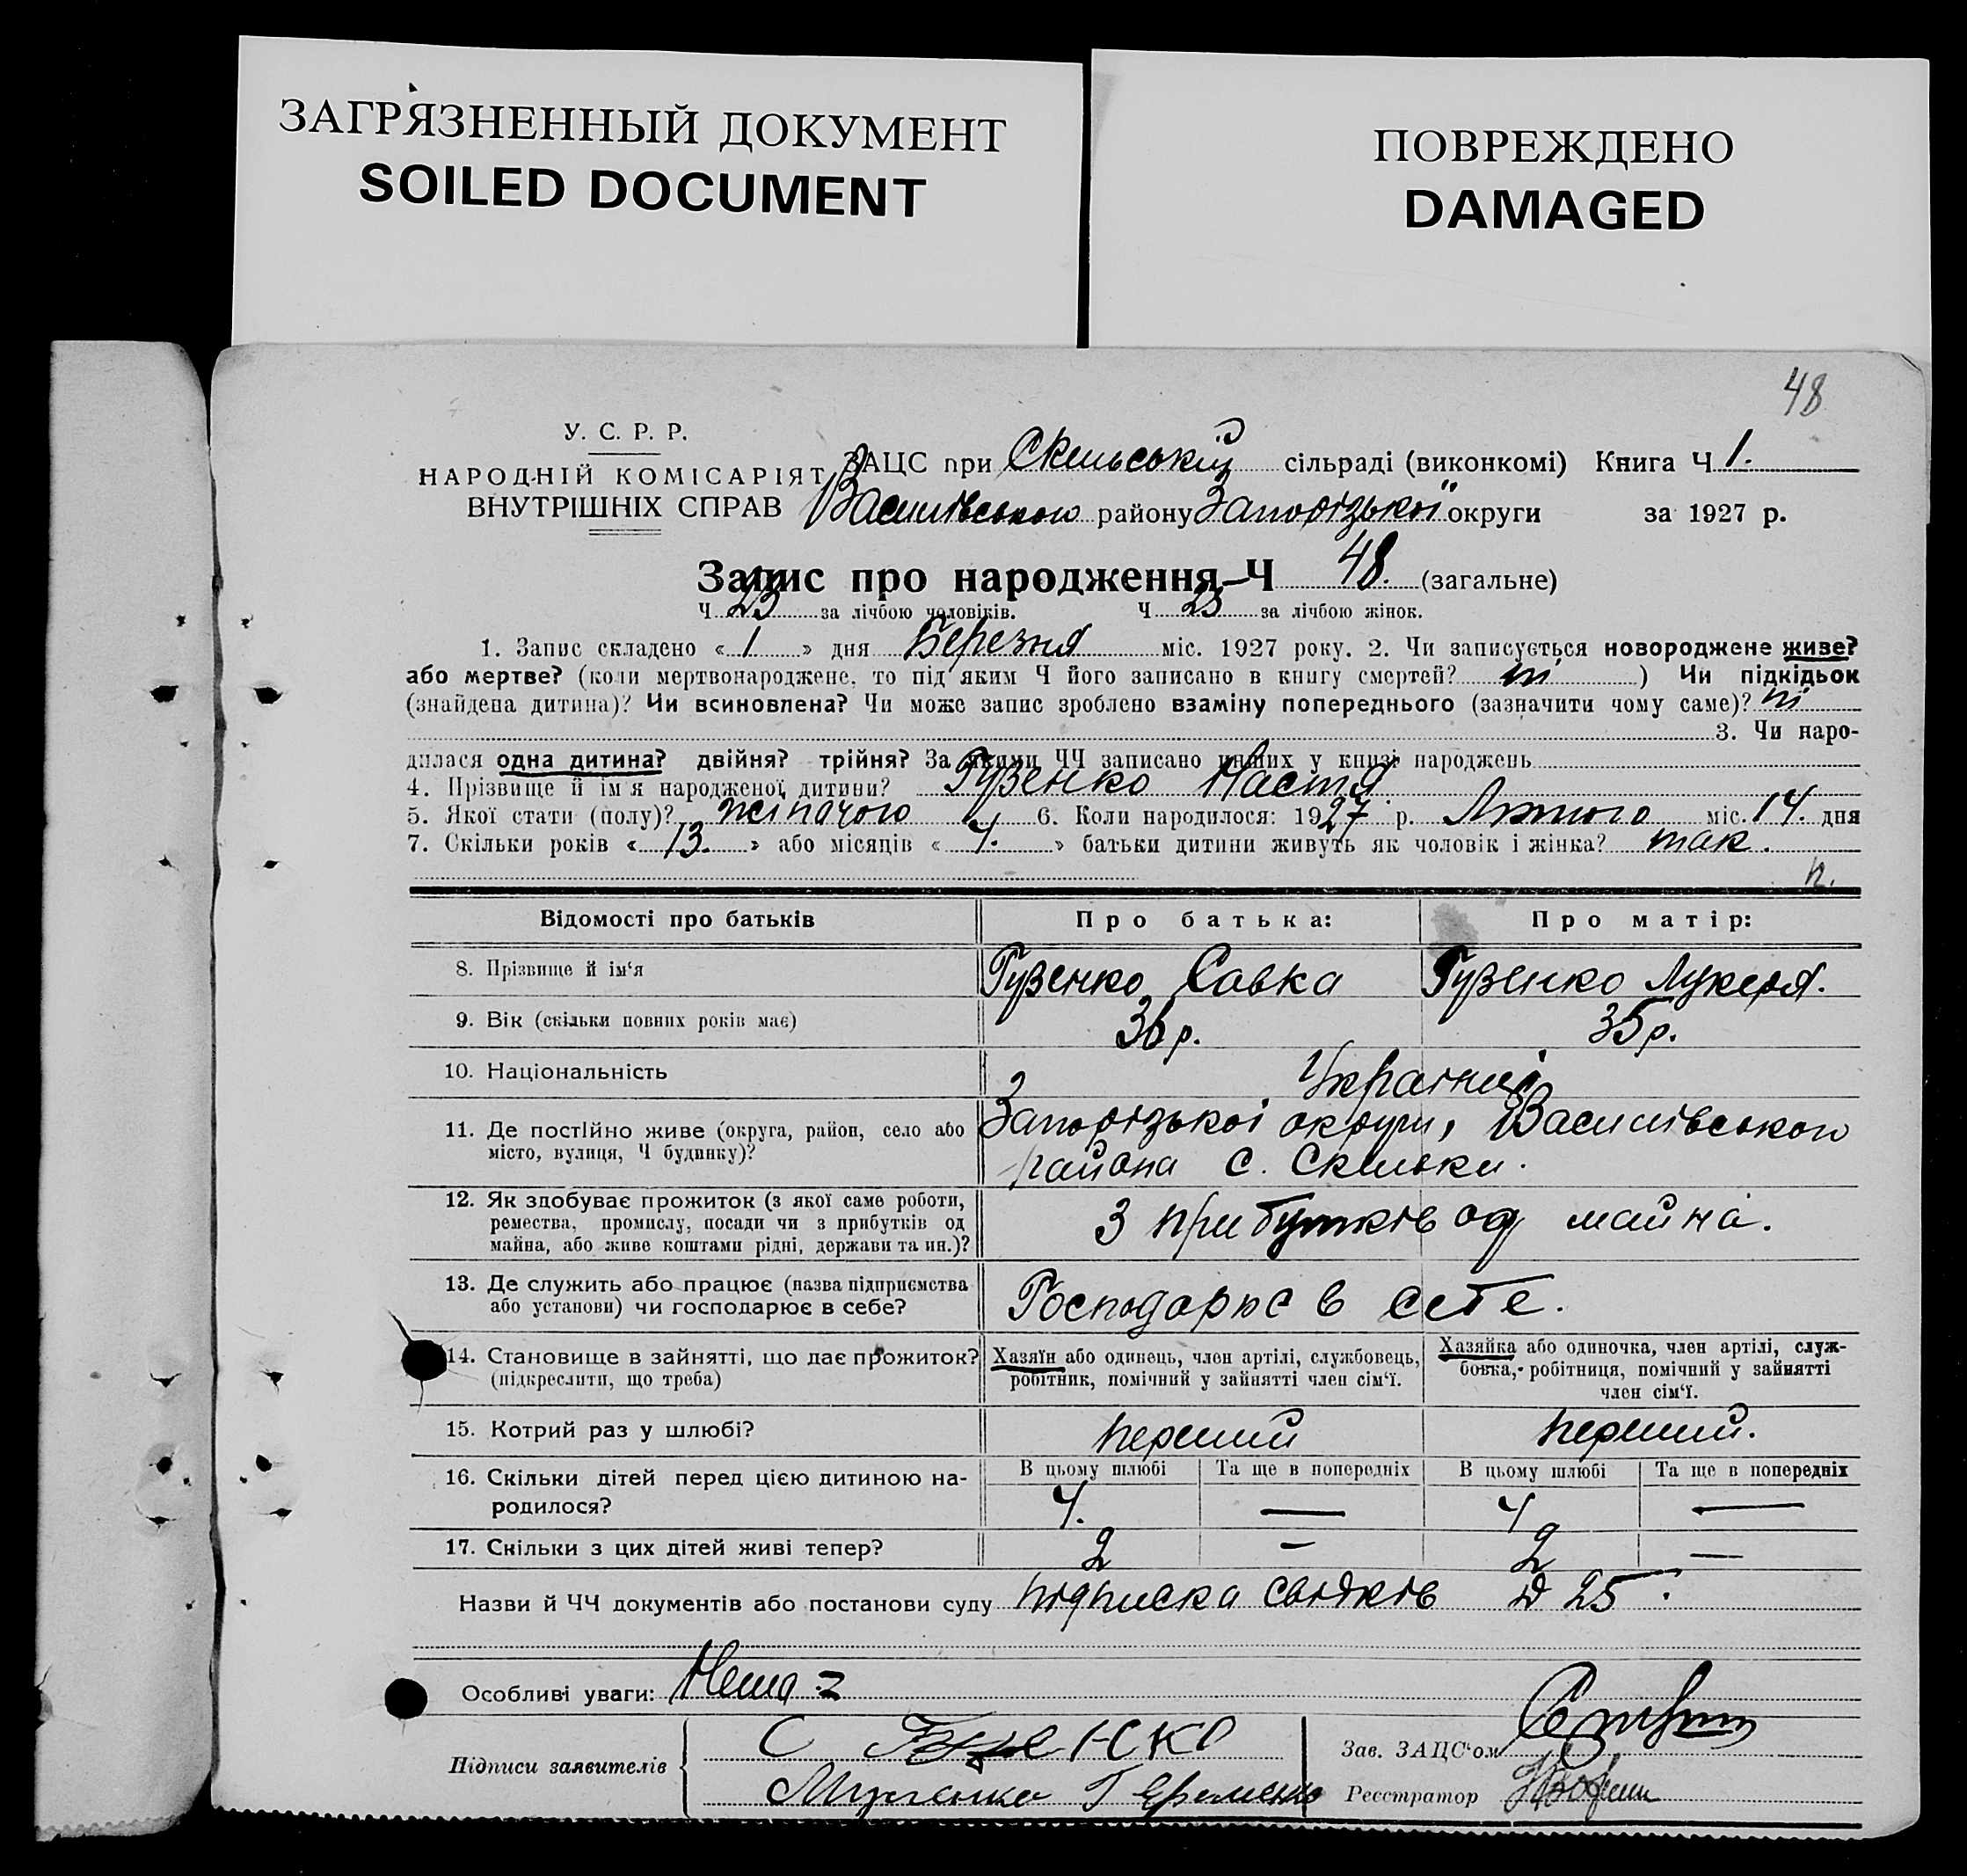 ЗАГРЯЗНЕННЫЙ ДОКУМЕНТ
SOILED DOCUMENT
ПОВРЕЖДЕНО
DAMAGED
48
У. С. Р. Р.
НАРОДНІЙ КОМІСАРІЯТ
ВНУТРІШНІХ СПРАВ
ЗАЦС при Скельській сільраді (виконкомі) Книга Ч 1.
Василівського району Запорізької округи за 1927 р.
Запис про народження—Ч 48. (загальне)
Ч 23 за лічбою чоловіків. Ч 25 за лічбою жінок.
1. Запис складено « 1 » дня Березня міс. 1927 року. 2. Чи записується новороджене живе?
або мертве? (коли мертвонароджене, то під яким Ч його записано в книгу смертей? ні ) Чи підкідьок
(знайдена дитина)? Чи всиновлена? Чи може запис зроблено взаміну попереднього (зазначити чому саме)? ні
3. Чи наро-
дилася одна дитина? двійня? трійня? За якими ЧЧ записано инших у книзі народжень
4. Прізвище й ім'я народженої дитини? Гузенко Настя.
5. Якої стати (полу)? жіночого 6. Коли народилося: 1927 р. Лютого міс. 14. дня
7. Скільки років « 13. » або місяців « 4. » батьки дитини живуть як чоловік і жінка? так.
Відомості про батьків
Про батька:
Про матір:
8. Прізвище й ім‘я
Гузенко Савка
Гузенко Лукеря.
9. Вік (скільки повних років має)
36 р.
35 р.
10. Національність
Українці
11. Де постійно живе (округа, район, село або
місто, вулиця, Ч будинку)?
Запорізької округи, Василівського
района с. Скельки.
12. Як здобуває прожиток (з якої саме роботи,
ремества, промислу, посади чи з прибутків од
майна, або живе коштами рідні, держави та ин.)?
З прибутків од майна.
13. Де служить або працює (назва підприємства
або установи) чи господарює в себе?
Господарює в себе.
14. Становище в зайнятті, що дає прожиток?
(підкреслити, що треба)
Хазяїн або одинець, член артілі, службовець,
робітник, помічний у зайнятті член сім‘ї.
Хазяйка або одиночка, член артілі, служ-
бовка, робітниця, помічний у зайнятті
член сім‘ї.
15. Котрий раз у шлюбі?
перший
перший.
16. Скільки дітей перед цією дитиною на-
родилося?
В цьому шлюбі
Та ще в попередніх
В цьому шлюбі
Та ще в попередніх
4.
—
4
—
17. Скільки з цих дітей живі тепер?
2
—
2
—
Назви й ЧЧ документів або постанови суду підписка свідків № 25.
Особливі уваги: Нема
Підписи заявителів
С Гузенко
Г Яременко
Зав. ЗАЦС‘ом
Реєстратор